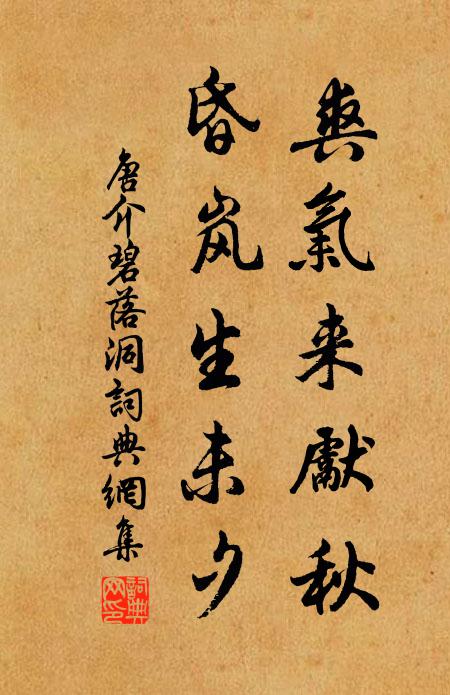 爽氣来獻秋
昏岚生未夕
唐介碧落洞詞典網集
詞典網印